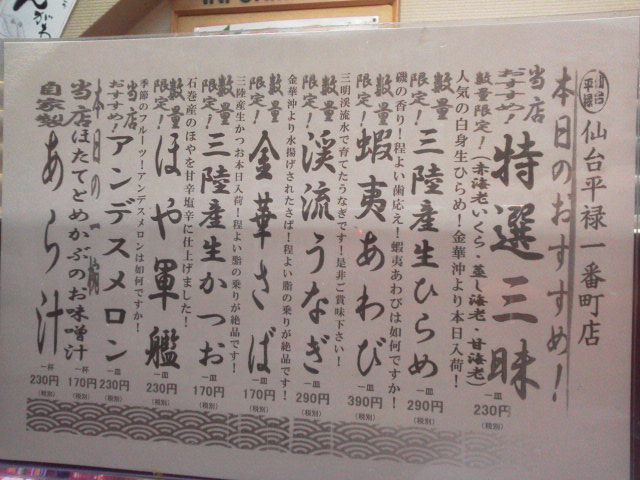 仙台平禄 仙台平禄一番町店
本日のおすすめ!
当店おすすめ! 特選三昧 一皿 230円(税別)
数量限定!(赤海老いくら・蒸し海老・甘海老)
人気の白身生ひらめ!金華沖より本日入荷!
数量限定! 三陸産生ひらめ 一皿 290円(税別)
磯の香り!程よい歯応え!蝦夷あわびは如何ですか!
数量限定! 蝦夷あわび 一皿 390円(税別)
三明渓流水で育てたうなぎです!是非ご賞味下さい!
数量限定! 渓流うなぎ 一皿 290円(税別)
金華沖より水揚げされたさば!程よい脂の乗りが絶品です!
数量限定! 金華さば 一皿 170円(税別)
三陸産生かつお本日入荷!程よい脂の乗りが絶品です!
数量限定! 三陸産生かつお 一皿 170円(税別)
石巻産のほやを甘辛塩辛に仕上げました!
数量限定! ほや軍艦 一皿 230円(税別)
季節のフルーツ!アンデスメロンは如何ですか!
当店おすすめ! アンデスメロン 一皿 230円(税別)
本日の一椀
当店 ほたてとめかぶのお味噌汁 一杯 170円(税別)
自家製 あら汁 一杯 230円(税別)